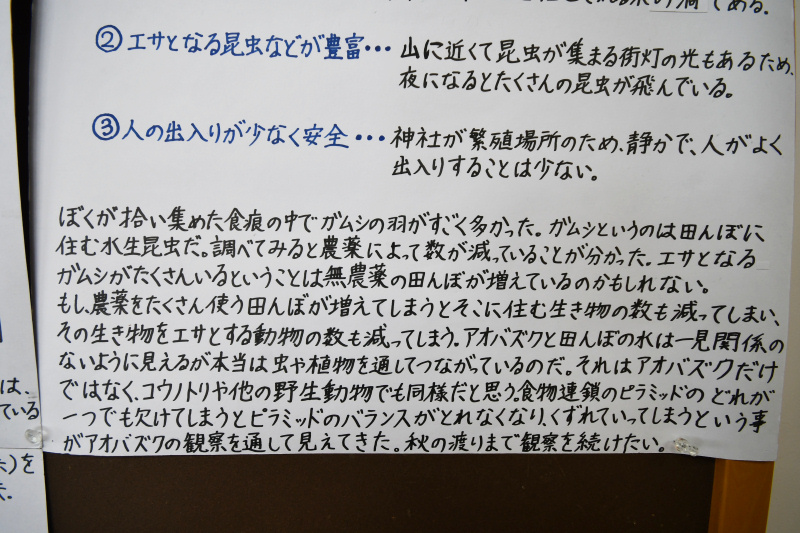 である.
②エサとなる昆虫などが豊富・・・ 山に近くて昆虫が集まる街灯の光もあるため、
夜になるとたくさんの昆虫が飛んでいる。
③人の出入りが少なく安全・・・ 神社が繁殖場所のため、静かで、人がよく
出入りすることは少ない。
ぼくが拾い集めた食痕の中でガムシの羽がすごく多かった。ガムシというのは田んぼに
住む水生昆虫だ。調べてみると農薬によって数が減っていることが分かった。エサとなる
ガムシがたくさんいるということは無農薬の田んぼが増えているのかもしれない。
もし、農薬をたくさん使う田んぼが増えてしまうとそこに住む生き物の数も減ってしまい、
その生き物をエサとする動物の数も減ってしまう。アオバズクと田んぼの水は一見関係の
ないように見えるが本当は虫や植物を通してつながっているのだ。それはアオバズクだけ
ではなく、コウノトリや他の野生動物でも同様だと思う。食物連鎖のピラミッドの どれが
一つでも欠けてしまうとピラミッドのバランスがとれなくなり、くずれていってしまうという事
がアオバズクの観察を通して見えてきた。秋の渡りまで観察を続けたい。
は、
ている
)を